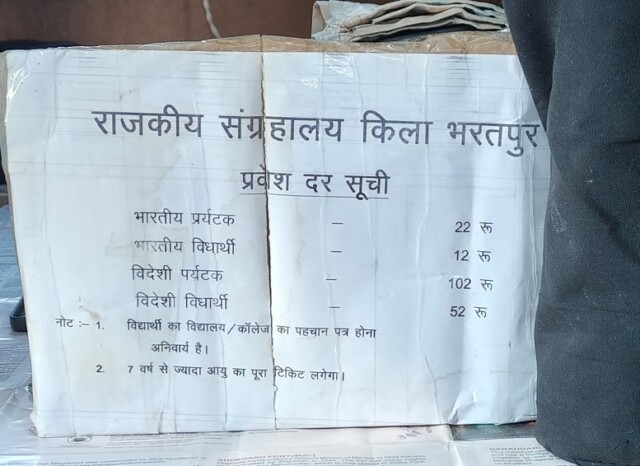 राजकीय संग्रहालय किला भरतपुर
प्रवेश दर सूची
भारतीय प्रर्यटक – 22 रू
भारतीय विधार्थी – 12 रू
विदेशी पर्यटक – 102 रू
विदेशी विधार्थी – 52 रू
नोट :– 1. विद्यार्थी का विद्यालय/कॉलेज का पहचान पत्र होना
अनिवार्य है।
2. 7 वर्ष से ज्यादा आयु का पूरा टिकिट लगेगा।